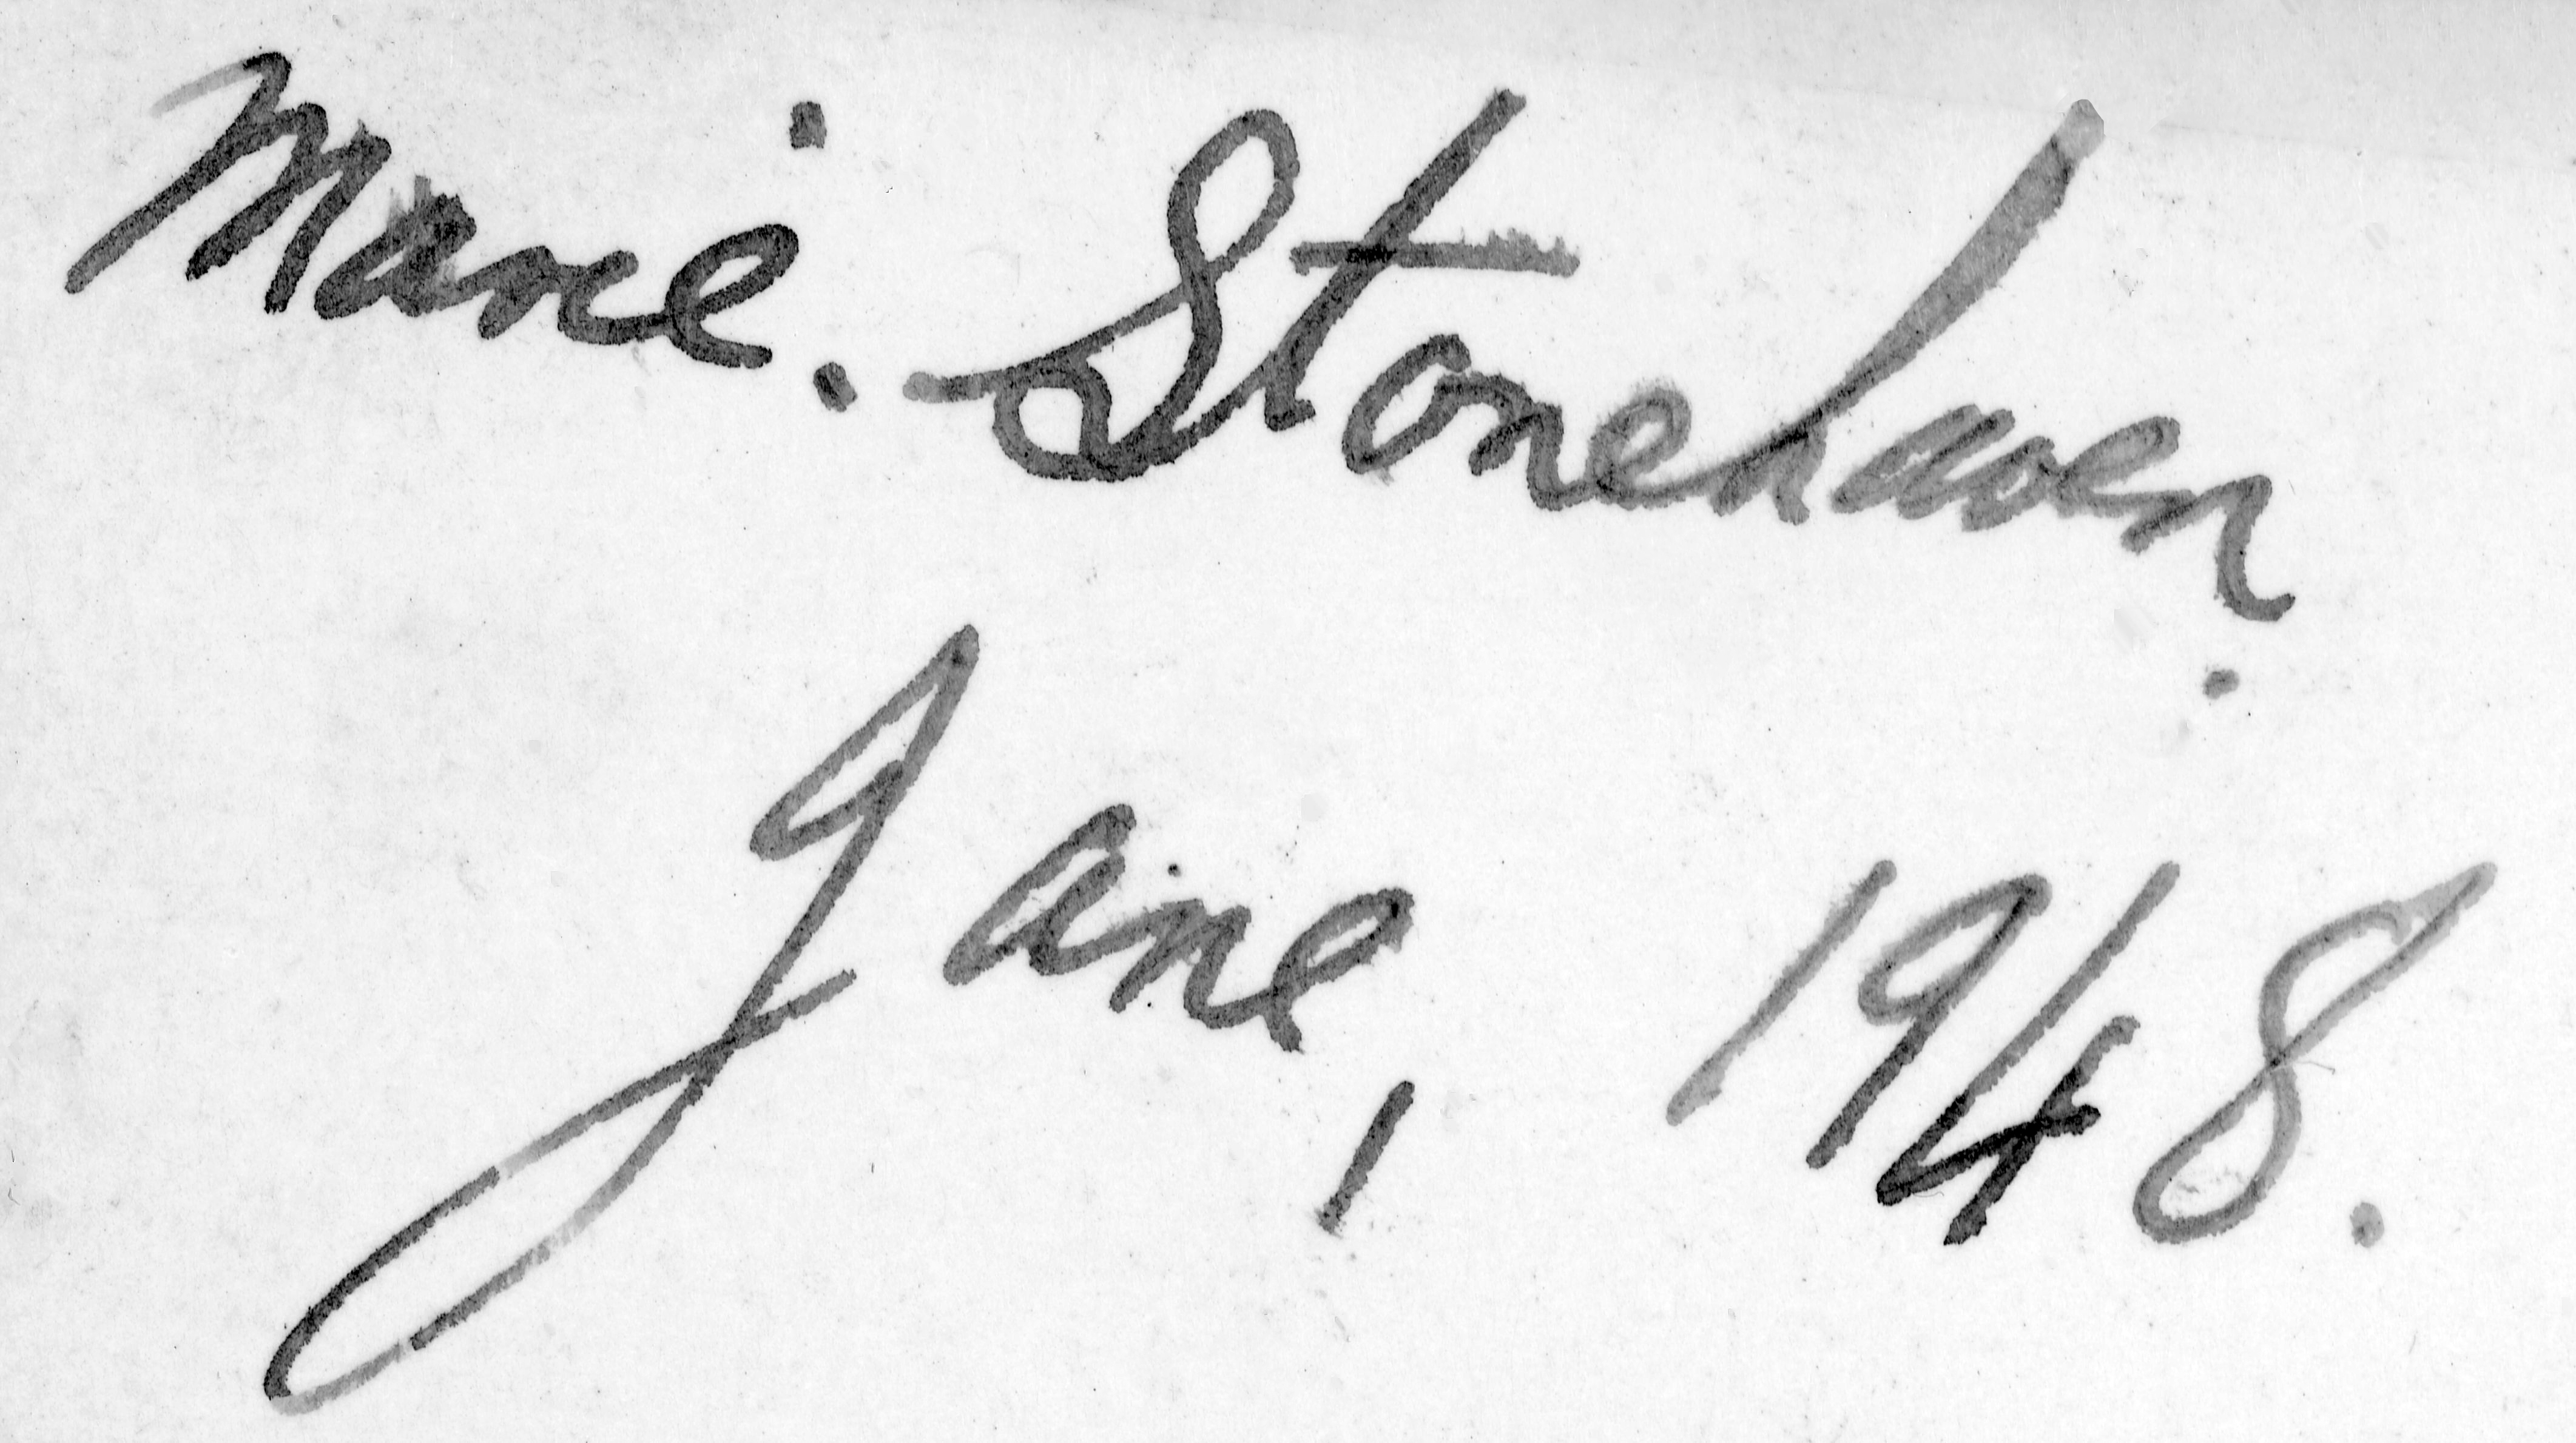 Marie. Stonehaven.
Jane, 1948.